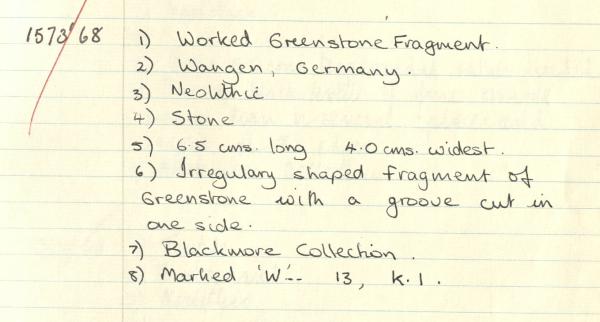 1573/68 1) Worked Greenstone Fragment.
2) Wangen, Germany.
3) Neolithic
4) Stone
5) 6.5 cms. long 4.0 cms. widest.
6) Irregulary shaped fragment of
Greenstone with a groove cut in
one side.
7) Blackmore Collection.
8) Marked 'W'-- 13, K.1.